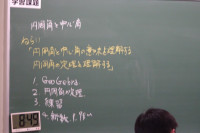 学習課題
円周角と中心角
ねらい
「円周角と中心角の意味を理解する
「円周角の定理を理解する
1. GeoGebra
2. 円周角の定理
3. 練習
4.
8:49